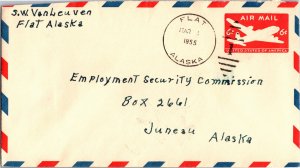 S.W. VanLeuven
Flat Alaska
FLAT
MAR 1
1955
ALASKA
AIR MAIL
6¢ 6¢
UNITED STATES OF AMERICA
Employment Security Commission
Box 2661
Juneau
Alaska